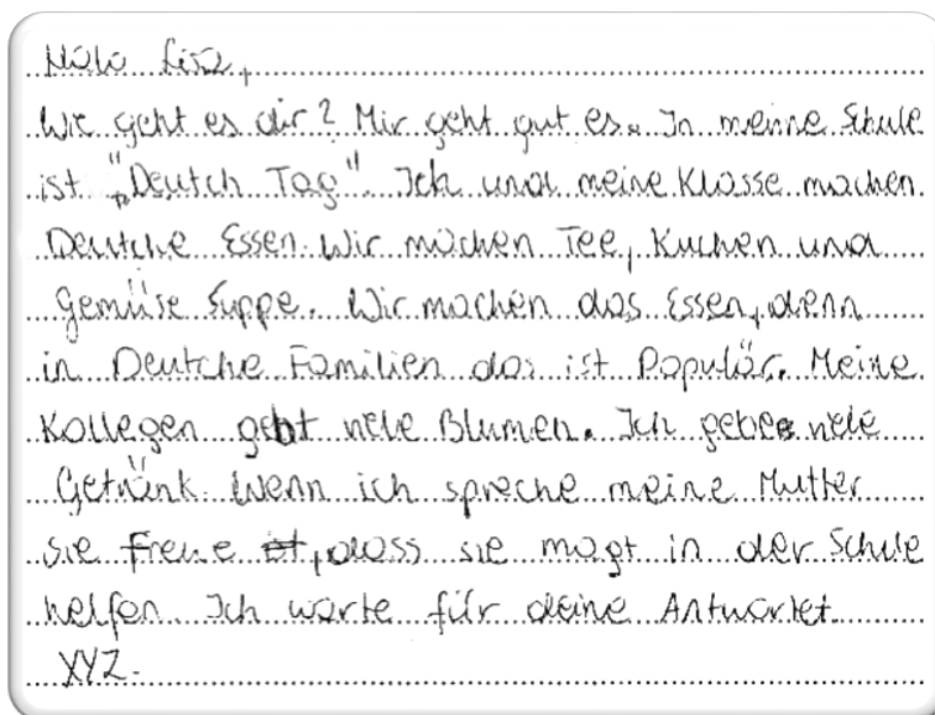 Hallo Lisa,
Wie geht es dir? Mir geht gut es. In meine Schule
ist "Deutch Tag". Ich und meine Klasse machen
Deutche Essen. Wir machen Tee, Kuchen und
Gemüse Suppe. Wir machen das Essen, denn
in Deutche Familien das ist Populär. Meine
Kollegen gebt viele Blumen. Ich gebe viele
Getränk. Wenn ich spreche meine Mutter
sie freue, dass sie magt in der Schule
helfen. Ich warte für deine Antwortet.
XYZ.